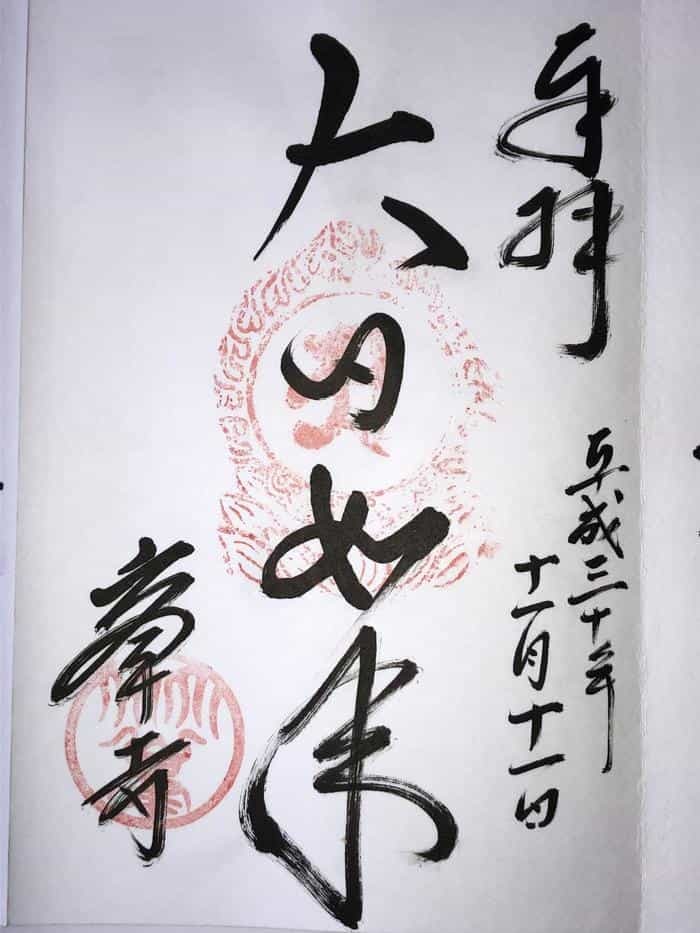 奉拝
平成三十年
十一月十一日
大日如来
峯寺